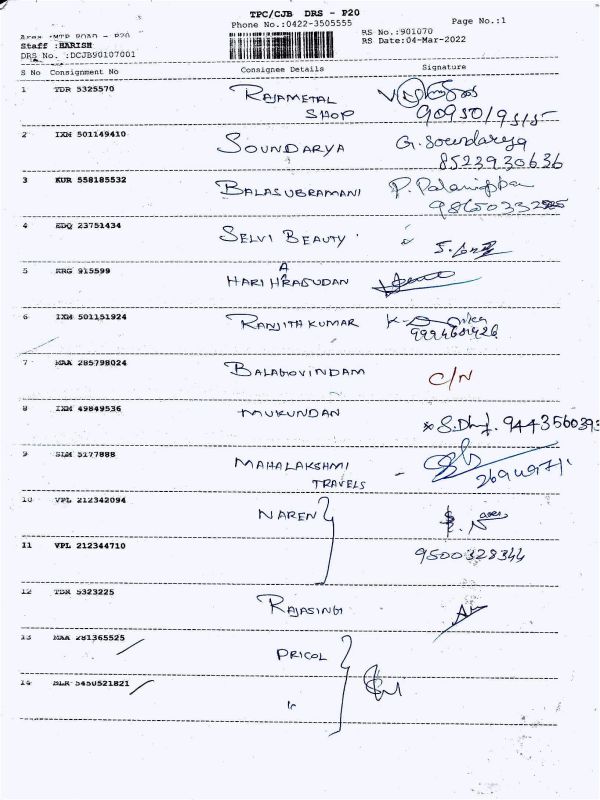 TPC/CJB DRS - P20
Phone No.:0422-3505555
Page No.:1
Area :MTP ROAD - P20
RS No.:901070
Staff :HARISH
RS Date:04-Mar-2022
DRS No. :DCJB90107001
S No Consignment No Consignee Details Signature
1 TDR 5325570 RAJAMETAL SHOP
2 IXM 501149410 SOUNDARYA G. Soundarya
8523930636
3 KUR 558185532 BALASUBRAMANI
4 EDQ 23751434 SELVI BEAUTY
5 KRG 915599 HARI HRAGUDAN
A
6 IXM 501151924 RANJITH KUMAR
7 MAA 285798024 BALAGOVINDAM C/N
8 IXM 49849536 MUKUNDAN 9443560393
9 SLM 5177888 MAHALAKSHMI
TRAVELS
10 VPL 212342094 NAREN
11 VPL 212344710 9500328344
12 TDR 5323225 RAJASINGI
13 MAA 281365525 PRICOL
14 BLR 5450521821 "